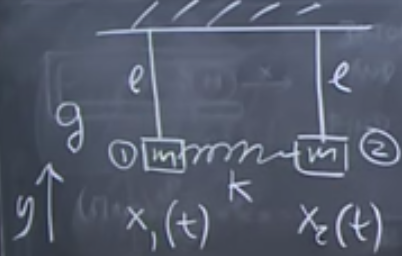 l l
g ① m m ②
k
y x₁(t) x₂(t)